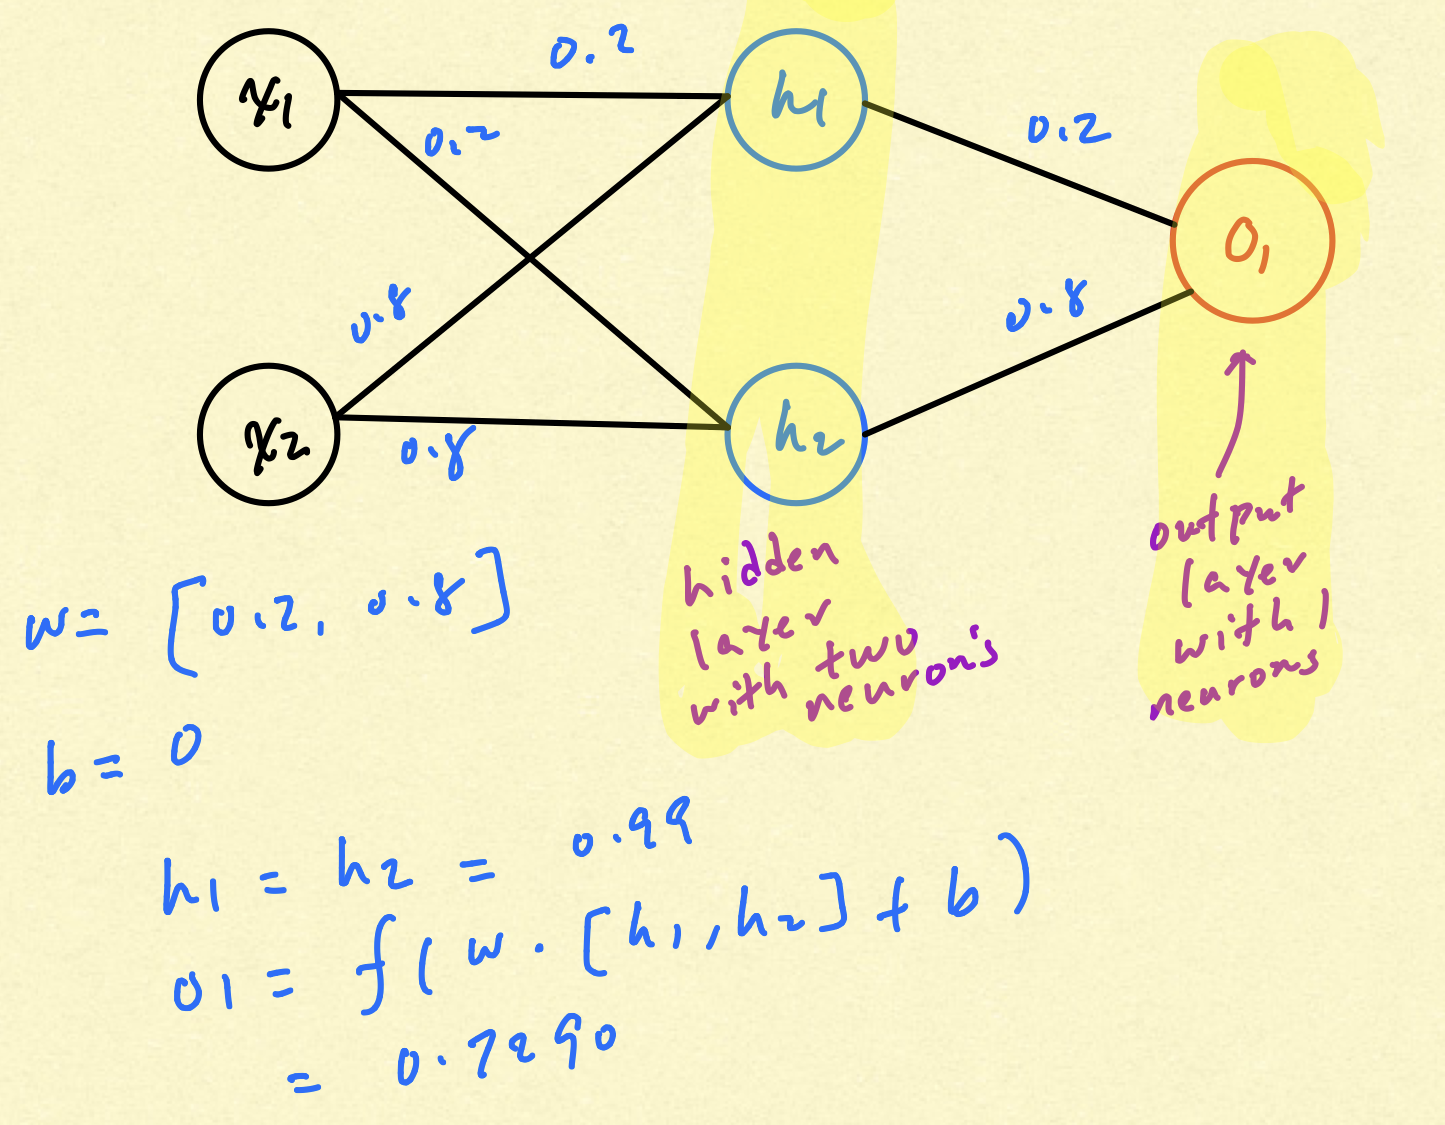 x1
0.2
h1
0.2
0.2
O1
0.8
0.8
x2
0.8
h2
hidden
layer
with two
neurons
output
layer
with 1
neurons
w= [0.2, 0.8]
b= 0
h1 = h2 = 0.99
o1 = f(w · [h1, h2] + b)
= 0.7290